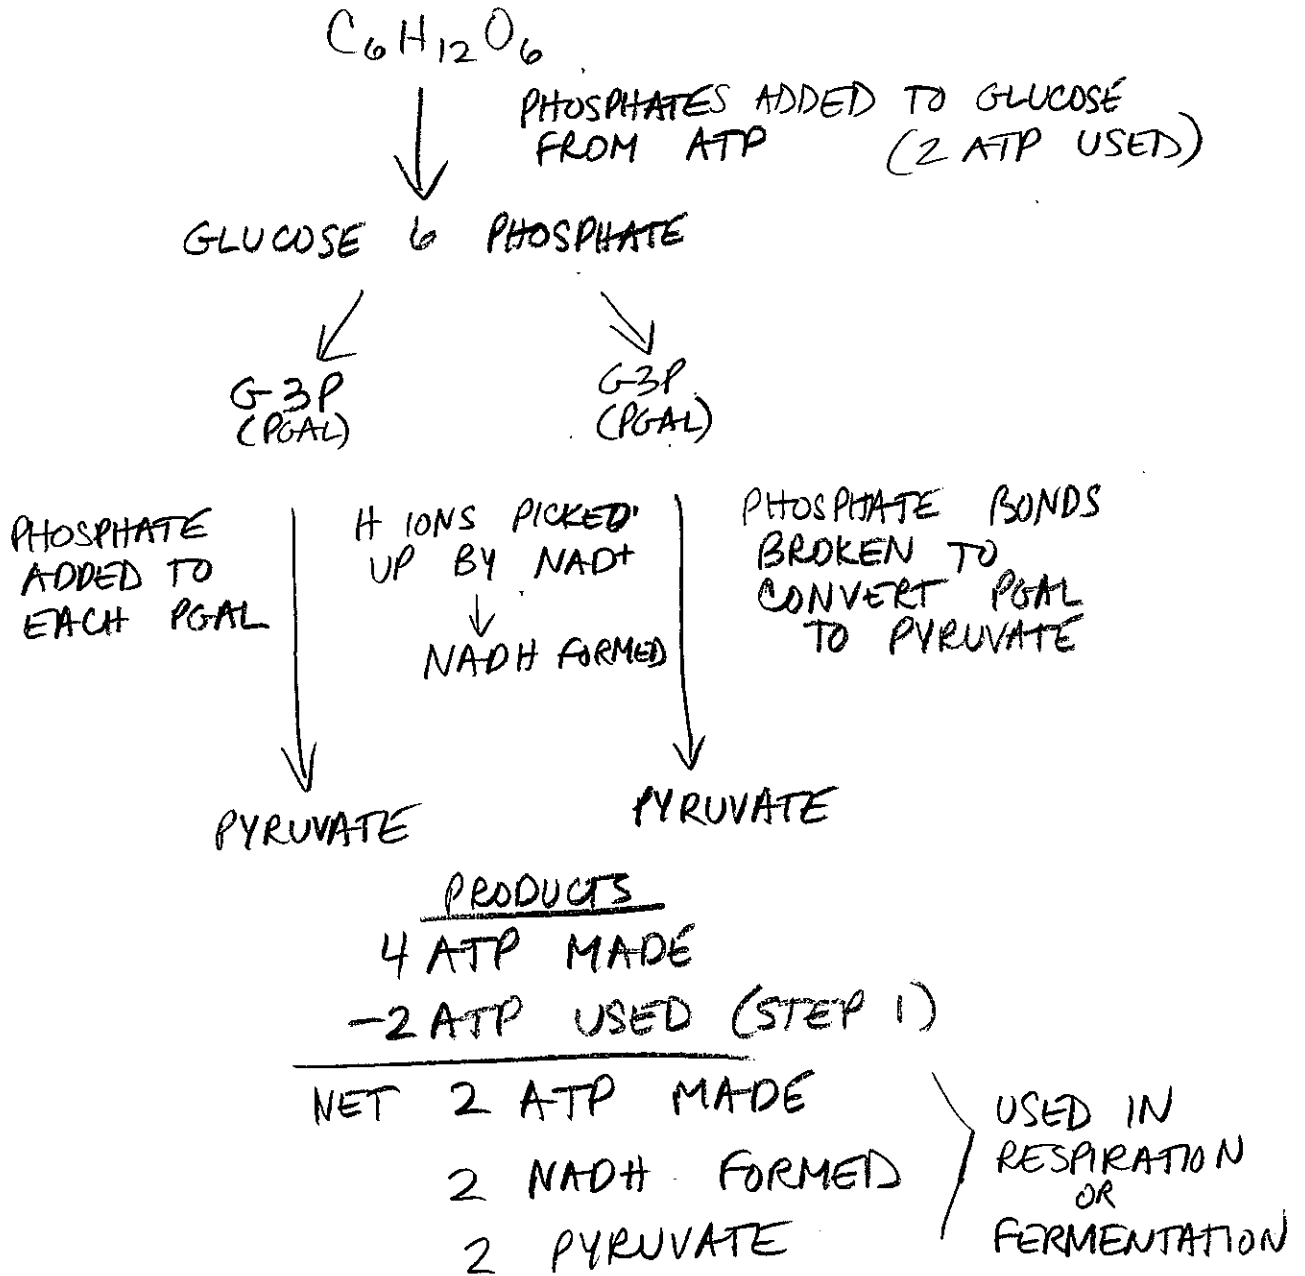 C6H12O6
PHOSPHATES ADDED TO GLUCOSE
FROM ATP (2 ATP USED)
GLUCOSE 6 PHOSPHATE
G-3P
(PGAL)
G-3P
(PGAL)
PHOSPHATE
ADDED TO
EACH PGAL
H IONS PICKED
UP BY NAD+
NADH FORMED
PHOSPHATE BONDS
BROKEN TO
CONVERT PGAL
TO PYRUVATE
PYRUVATE
PYRUVATE
PRODUCTS
4 ATP MADE
-2 ATP USED (STEP 1)
NET 2 ATP MADE
2 NADH FORMED
2 PYRUVATE
USED IN
RESPIRATION
OR
FERMENTATION